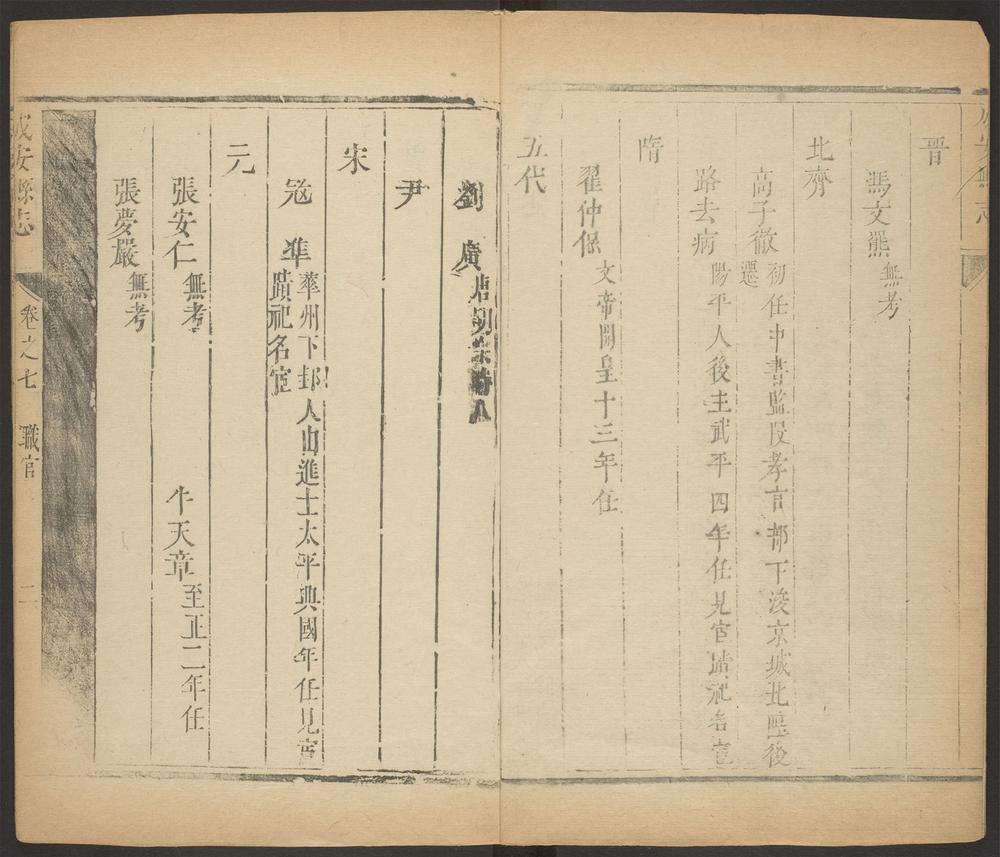 晉
馮文羆 無考
北齊
高子徹 初任中書監 孝言部下浚京城北壂後
還
路去病 陽平人後主武平四年任見宦蹟祀名宦
隋
翟仲保 文帝開皇十三年任
五代
劉廣
尹
宋
寇準 華州下邽人由進士太平興國年任見宦
蹟祀名宦
元
張安仁 無考 牛天章 至正二年任
張夢嚴 無考
成安縣志 卷之七 職官 二